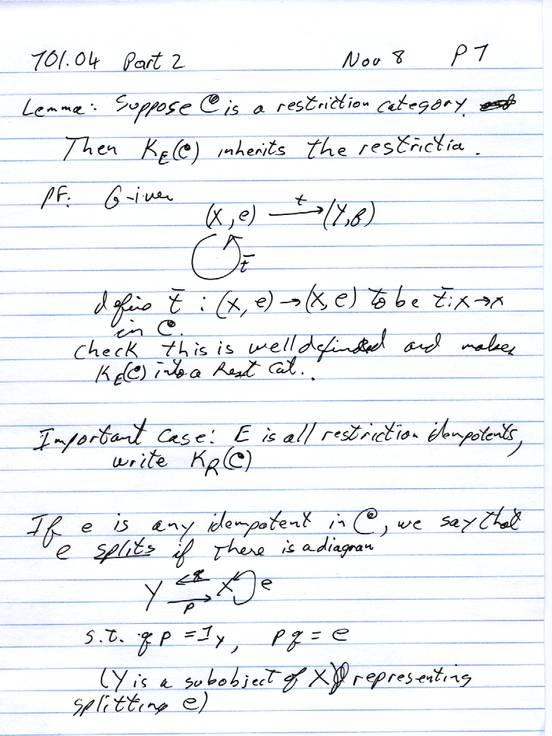 701.04 Part 2 Nov 8 P7
Lemma: Suppose C is a restriction category.
Then K_E(C) inherits the restriction.
PF: Given
(X, e) —t→ (Y, B)
t̄
define t̄ : (X, e) → (X, e) to be t̄: X → X
in C.
check this is well defined and makes
K_E(C) into a Rest Cat..
Important Case: E is all restriction idempotents,
write K_R(C)
If e is any idempotent in C, we say that
e splits if there is a diagram
Y ⇄ X e
p
s.t. qp = 1_Y, pq = e
(Y is a subobject of X representing
splitting e)